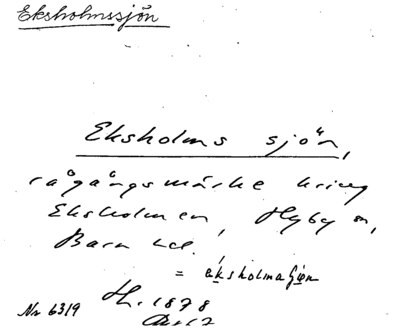 Eksholmssjön
Eksholms sjön,
rågångsmärke kring
Eksholmen, Hyby sn,
Bara hd.
= eksholmaſjøn
Nr 6319 H. 1878